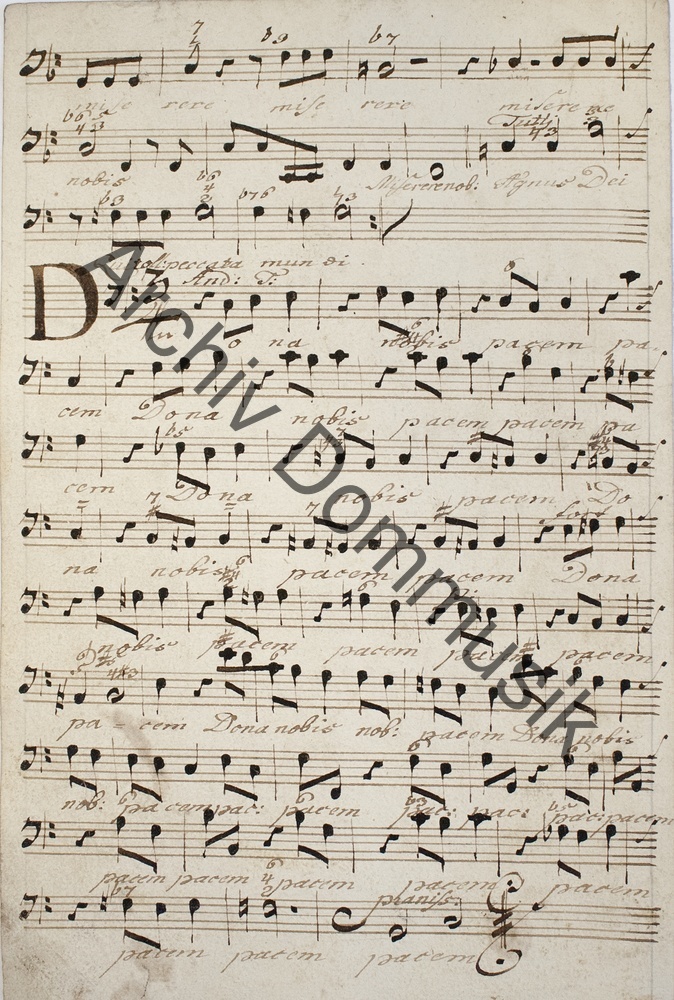 mise rere mise rere miserere
Tutti
nobis Miserere nob: Agnus Dei
tol: peccata mundi
And: T:
D
o na nobis pacem pa
cem Dona nobis pacem pacem pa
cem Dona nobis pacem Do
fort
na nobis pacem pacem Dona
nobis pacem pacem pacem pacem
pa - cem Dona nobis nob: pacem Dona nobis
nob: pacem pac: pacem pac: pac: pac: pacem
pacem pacem pacem pacem pacem
pianiss:
pacem pacem pacem
Archiv Dommusik